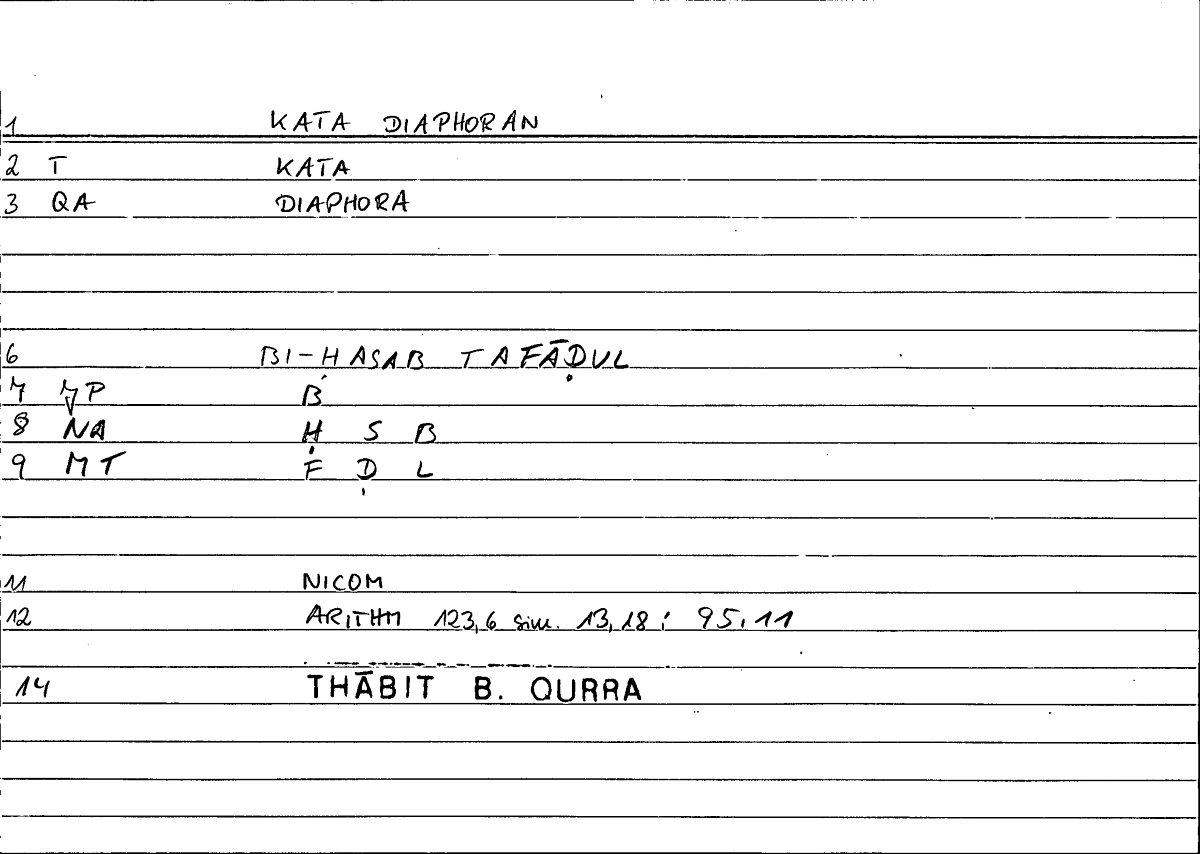 1 KATA DIAPHORAN
2 T KATA
3 QA DIAPHORA
6 BI-ḤASAB TAFĀḌUL
7 MP B
8 NA Ḥ S B
9 MT F Ḍ L
11 NICOM
12 ARITHM 123,6 sim. 13,18 ; 95.11
14 THĀBIT B. QURRA